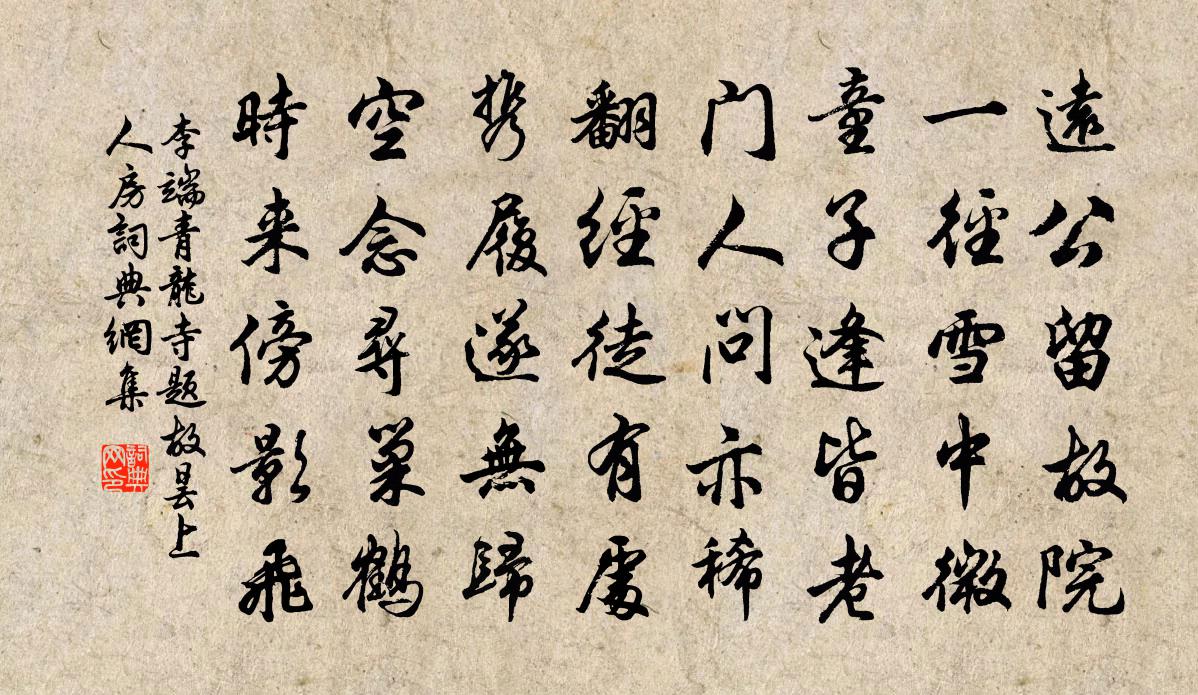 遠公留故院
一徑雪中微
童子逢皆老
門人問亦稀
翻經徒有處
携履遂無歸
空念尋巢鶴
時来傍影飛
李端青龍寺题故曇上
人房詞典網集
詞典
网印